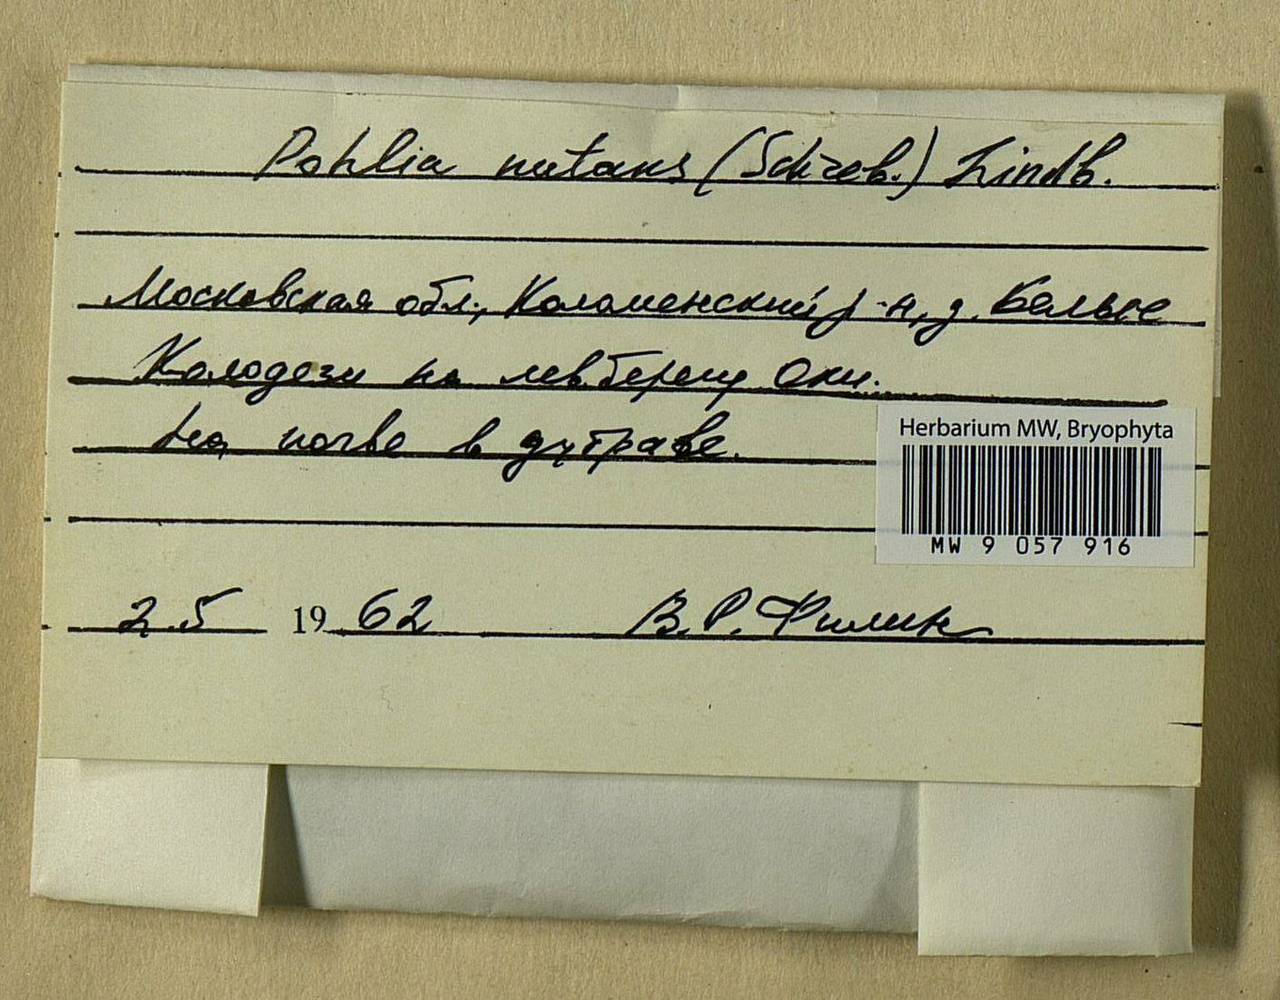 Pohlia nutans (Schreb.) Lindb.
Московская обл., Коломенский р-н, д. Белые
Колодези на лев. берегу Оки.
На почве в дубраве.
Herbarium MW, Bryophyta
MW 9 057 916
2.5 1962 В.Р. Филин